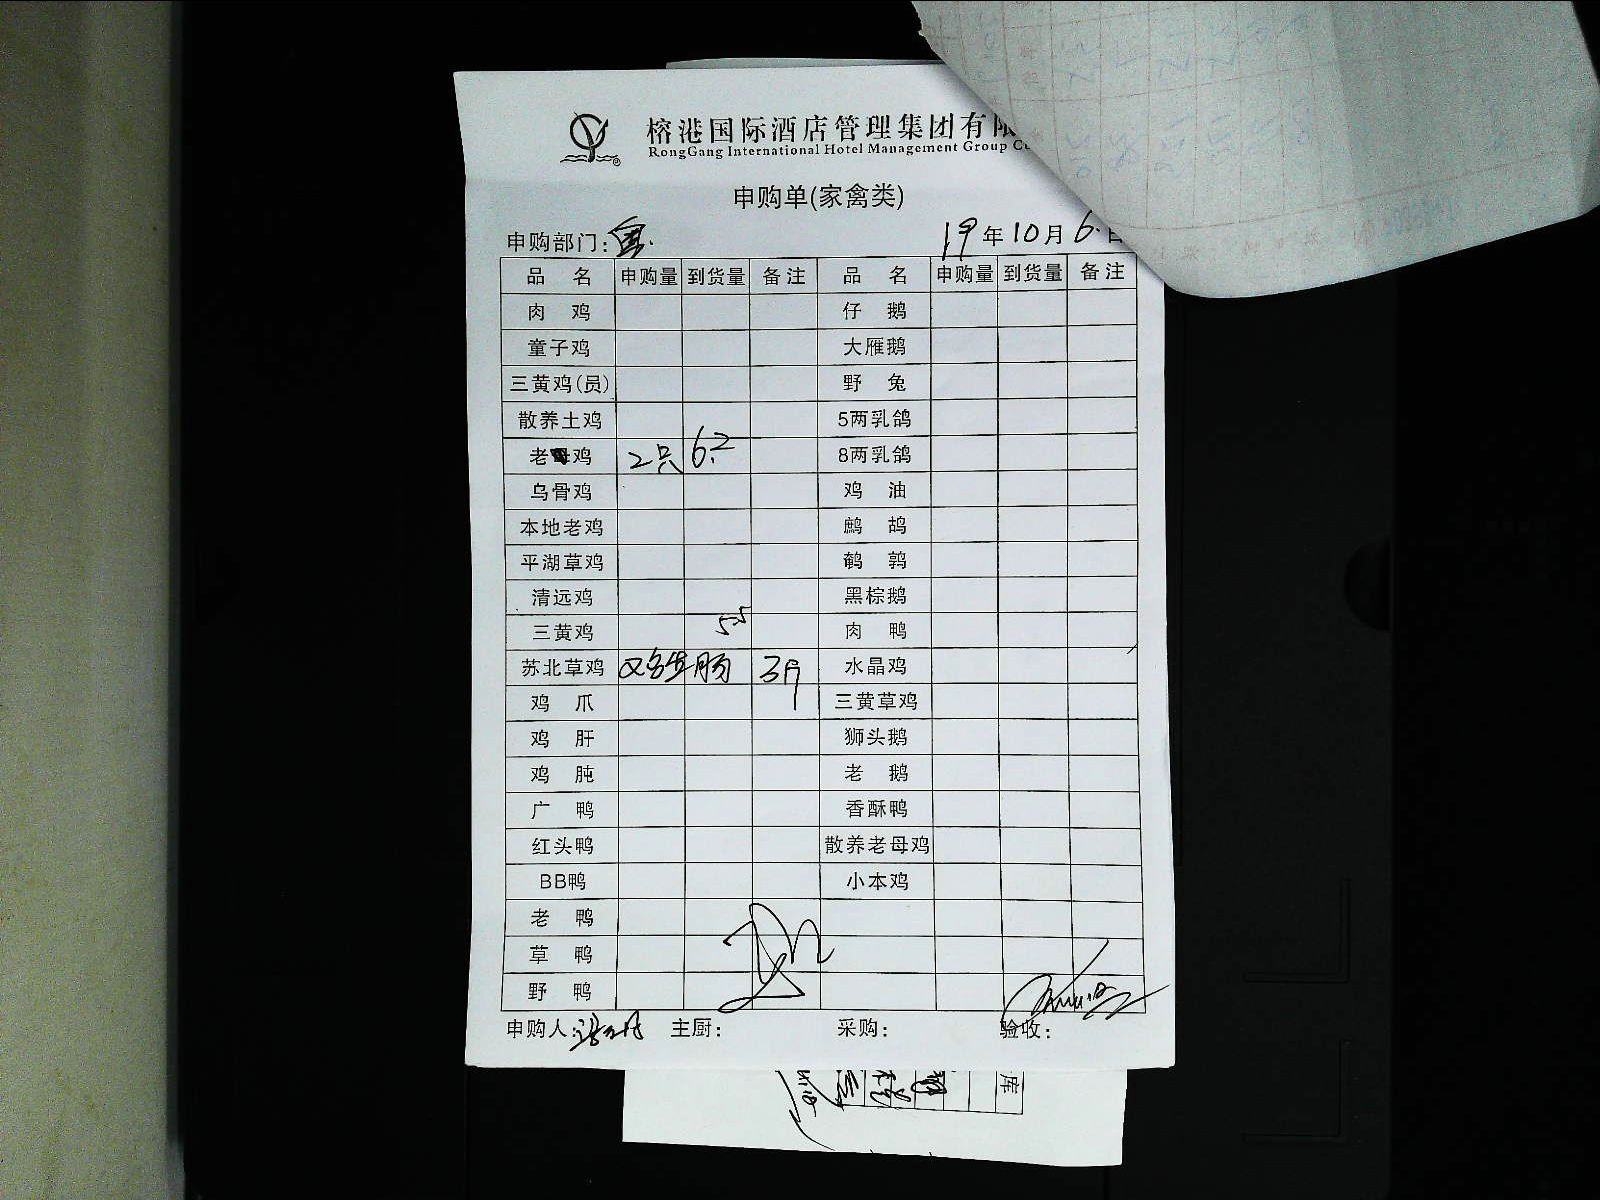 榕港国际酒店管理集团有限
RongGang International Hotel Management Group Co
申购单(家禽类)
申购部门: 19年10月6日
品名 申购量 到货量 备注 品名 申购量 到货量 备注
肉鸡 仔鹅
童子鸡 大雁鹅
三黄鸡(员) 野兔
散养土鸡 5两乳鸽
老母鸡 2只 6.2 8两乳鸽
乌骨鸡 鸡油
本地老鸡 鹧鸪
平湖草鸡 鹌鹑
清远鸡 黑棕鹅
三黄鸡 55 肉鸭
苏北草鸡 鸡生肠 3斤 水晶鸡
鸡爪 三黄草鸡
鸡肝 狮头鹅
鸡肫 老鹅
广鸭 香酥鸭
红头鸭 散养老母鸡
BB鸭 小本鸡
老鸭
草鸭
野鸭
申购人: 主厨: 采购: 验收:
库